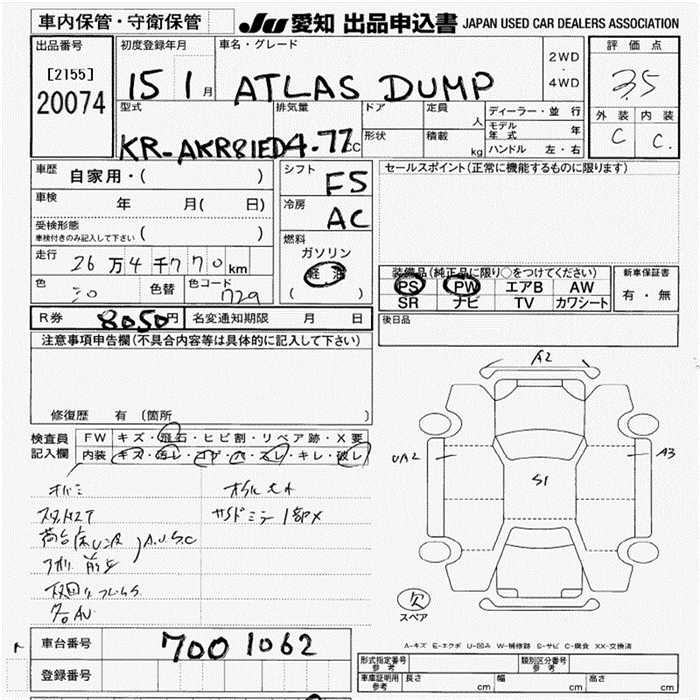 車内保管・守衛保管 JU 愛知 出品申込書 JAPAN USED CAR DEALERS ASSOCIATION
出品番号
[2155]
20074
初度登録年月
15 1 月
車名・グレード
ATLAS DUMP
2WD
・
4WD
評価点
3.5
外装 内装
C C.
型式
KR-AKR81ED
排気量
4.77 CC
ドア
形状
定員
人
積載
kg
ディーラー・並行
モデル年式 年
ハンドル 左・右
車歴
自家用・( )
車検
年 月( 日)
受検形態
車検付きのみ記入して下さい ( )
走行
26万4千770km
色
色替
色コード
729
シフト
F5
冷房
AC
燃料
ガソリン
軽油
( )
セールスポイント(正常に機能するものに限ります)
装備品(純正品に限り○をつけてください)
PS PW エアB AW
SR ナビ TV カワシート
新車保証書
有・無
R券 8050円 名変通知期限 月 日
後日品
注意事項申告欄(不具合内容等は具体的に記入して下さい)
修復歴 有 (箇所 )
検査員
記入欄
FW キズ・飛石・ヒビ割・リペア跡・X要
内装 キズ・汚レ・コゲ・穴・スレ・キレ・破レ
A2
UA2
A3
S1
欠
スペア
A-キズ E-エクボ U-凹み W-補修跡 S-サビ C-腐食 XX-交換済
車台番号 7001062
登録番号
型式指定番号
参考
類別区分番号
参考
車庫証明用
参考
長さ cm 幅 cm 高さ cm